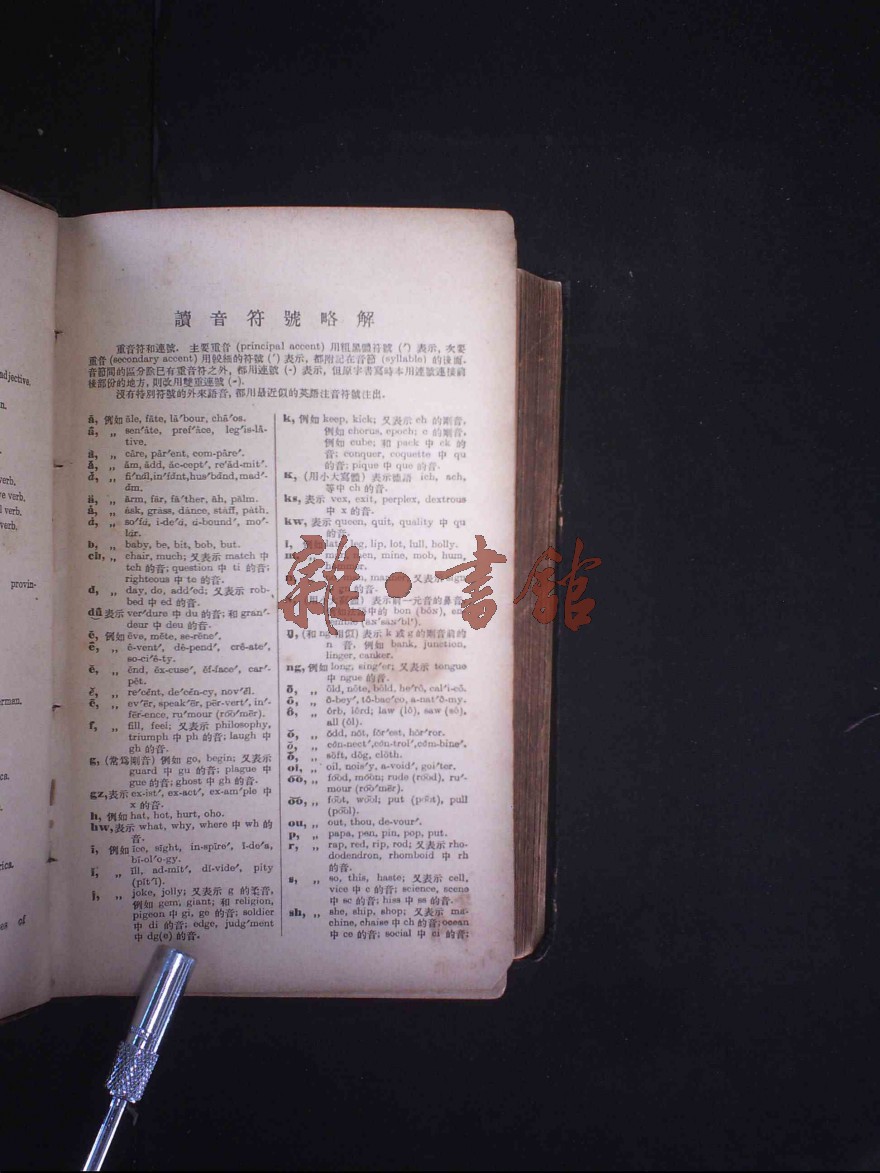 adjective.
n.
verb.
e verb.
l verb.
verb.
provin-
erman.
ca.
rica.
es of
讀音符號略解
重音符和連號. 主要重音 (principal accent) 用粗黑體符號 (′) 表示, 次要
重音 (secondary accent) 用較細的符號 (′) 表示, 都附記在音節 (syllable) 的後面.
音節間的區分除已有重音符之外, 都用連號 (-) 表示, 但原字書寫時本用連號連接前
後部份的地方, 則改用雙重連號
沒有特別符號的外來語音, 都用最近似的英語注音符號注出.
ā, 例如 āle, fāte, lā′bour, chā′os.
„ sen′āte, pref′āce, leg′is-lā-
tive.
â, „ câre, pâr′ent, com-pâre′.
ă, „ ăm, ădd, ăc-cept′, re′ăd-mit′.
„ fi′năl, in′fănt, hus′bănd, mad′-
ăm.
ä, „ ärm, fär, fä′ther, äh, pälm.
„ ȧsk, grȧss, dȧnce, stȧff, pȧth.
„ so′fɑ, i-de′ɑ, ɑ-bound′, mo′-
lɑr.
b, „ baby, be, bit, bob, but.
ch, „ chair, much; 又表示 match 中
tch 的音; question 中 ti 的音;
righteous 中 te 的音.
d, „ day, do, add′ed; 又表示 rob-
bed 中 ed 的音.
表示 ver′dure 中 du 的音; 和 gran′-
deur 中 deu 的音.
ē, 例如 ēve, mēte, se-rēne′.
„ ē-vent′, dē-pend′, crē-ate′,
so-ci′ē-ty.
ĕ, „ ĕnd, ĕx-cuse′, ĕf-face′, car′-
pĕt.
„ re′cĕnt, de′cĕn-cy, nov′ĕl.
ẽ, „ ev′ẽr, speak′ẽr, pẽr-vert′, in′-
fẽr-ence, ru′mour (roo′mẽr).
f, „ fill, feel; 又表示 philosophy,
triumph 中 ph 的音; laugh 中
gh 的音.
g, (常爲剛音) 例如 go, begin; 又表示
guard 中 gu 的音; plague 中
gue 的音; ghost 中 gh 的音.
gz, 表示 ex-ist′, ex-act′, ex-am′ple 中
x 的音.
h, 例如 hat, hot, hurt, oho.
hw, 表示 what, why, where 中 wh 的
音.
ī, 例如 īce, sīght, in-spīre′, ī-de′a,
bī-ol′o-gy.
ĭ, „ ĭll, ad-mĭt′, dĭ-vide′, pity
(pĭt′ĭ).
j, „ joke, jolly; 又表示 g 的柔音,
例如 gem, giant; 和 religion,
pigeon 中 gi, ge 的音; soldier
中 di 的音; edge, judg′ment
中 dg(e) 的音.
k, 例如 keep, kick; 又表示 ch 的剛音,
例如 chorus, epoch; c 的剛音,
例如 cube; 和 pack 中 ck 的
音; conquer, coquette 中 qu
的音; pique 中 que 的音.
K, (用小大寫體) 表示德語 ich, ach,
等中 ch 的音.
ks, 表示 vex, exit, perplex, dextrous
中 x 的音.
kw, 表示 queen, quit, quality 中 qu
的音.
l, 例如 late, leg, lip, lot, lull, holly.
men, mine, mob, hum,
manner; 又表示 sign
gn 的音.
表示前一元音的鼻音
中的 bon (bôN), en-
semble
(和 ng 相似) 表示 k 或 g 的剛音前的
n 音, 例如 bank, junction,
linger, canker.
ng, 例如 long, sing′er; 又表示 tongue
中 ngue 的音.
ō, „ ōld, nōte, bōld, he′rō, cal′i-cō.
„ ō-bey′, tō-bac′co, a-nat′ō-my.
ô, „ ôrb, lôrd; law (lô), saw (sô),
all (ôl).
ŏ, „ ŏdd, nŏt, fŏr′est, hŏr′ror.
„ cŏn-nect′, cŏn-trol′, cŏm-bine′.
„ sŏft, dŏg, clŏth.
oi, „ oil, nois′y, a-void′, goi′ter.
ōō, „ fōōd, mōōn; rude (rōōd), ru′-
mour (rōō′mẽr).
ŏŏ, „ fŏŏt, wŏŏl; put (pŏŏt), pull
(pŏŏl).
ou, „ out, thou, de-vour′.
p, „ papa, pen, pin, pop, put.
r, „ rap, red, rip, rod; 又表示 rho-
dodendron, rhomboid 中 rh
的音.
s, „ so, this, haste; 又表示 cell,
vice 中 c 的音; science, scene
中 sc 的音; hiss 中 ss 的音.
sh, „ she, ship, shop; 又表示 ma-
chine, chaise 中 ch 的音; ocean
中 ce 的音; social 中 ci 的音;
雜·書館